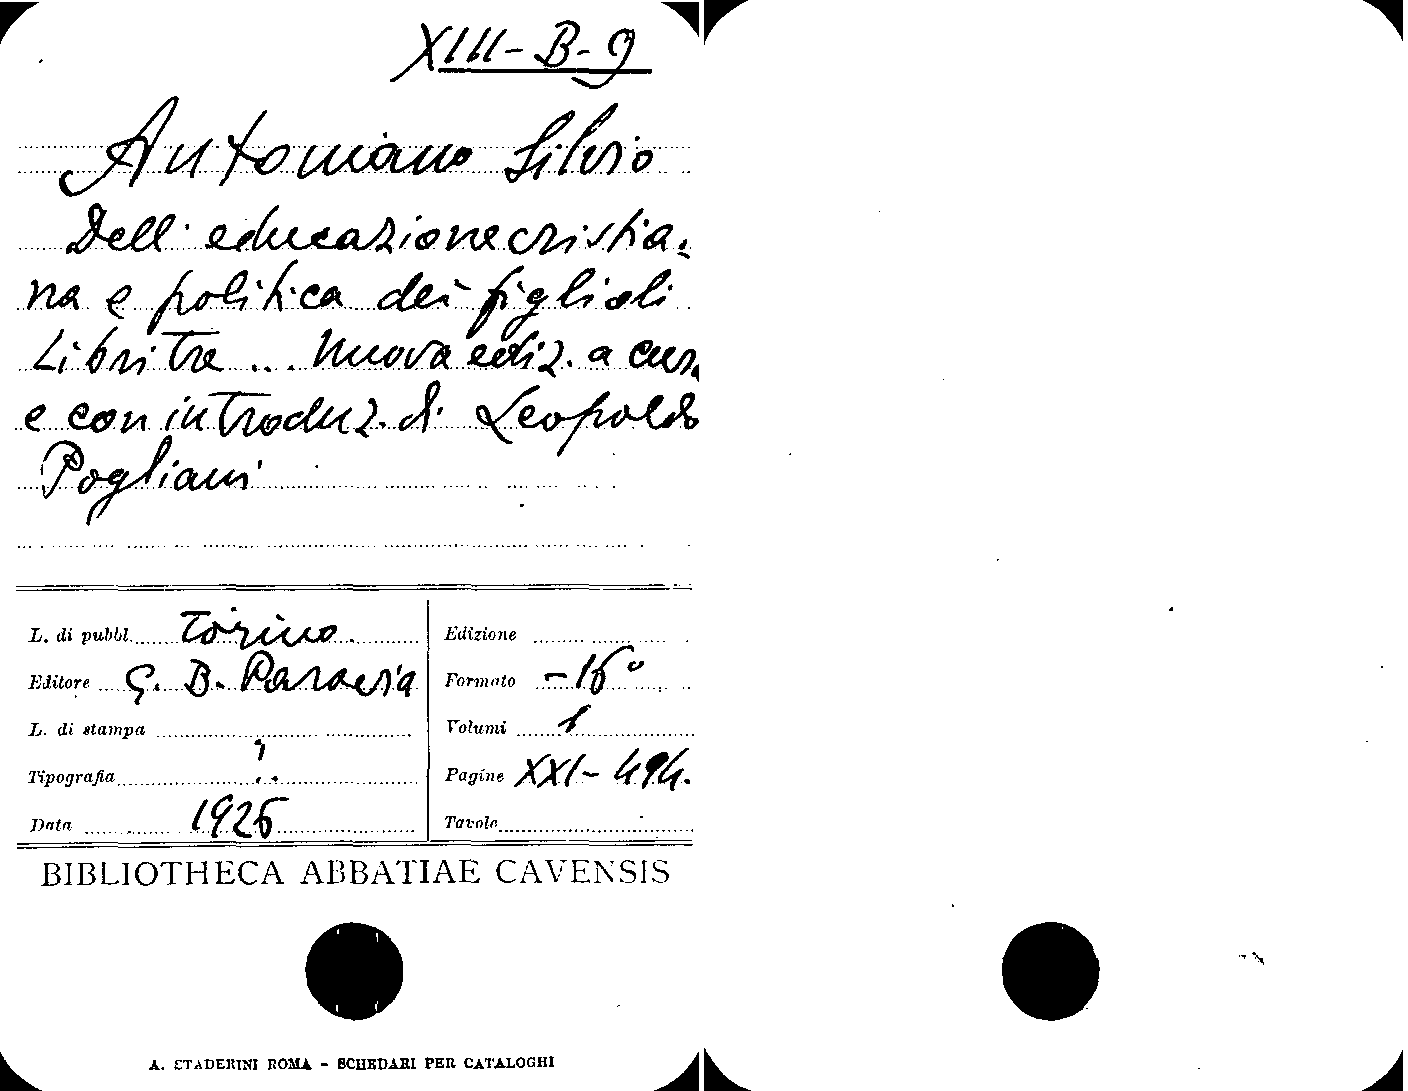 XIII-B-9
Antoniano Silvio
Dell'educazione cristia-
na e politica dei figlioli
Libri tre ... Nuova ediz. a cura
e con introduz. di Leopoldo
Pogliani
L. di pubbl. Torino.
Editore G. B. Paravia
L. di stampa
Tipografia
Data 1926
Edizione
Formato -16°
Volumi 1
Pagine XXI-494.
Tavole
BIBLIOTHECA ABBATIAE CAVENSIS
A. STADERINI ROMA - SCHEDARI PER CATALOGHI